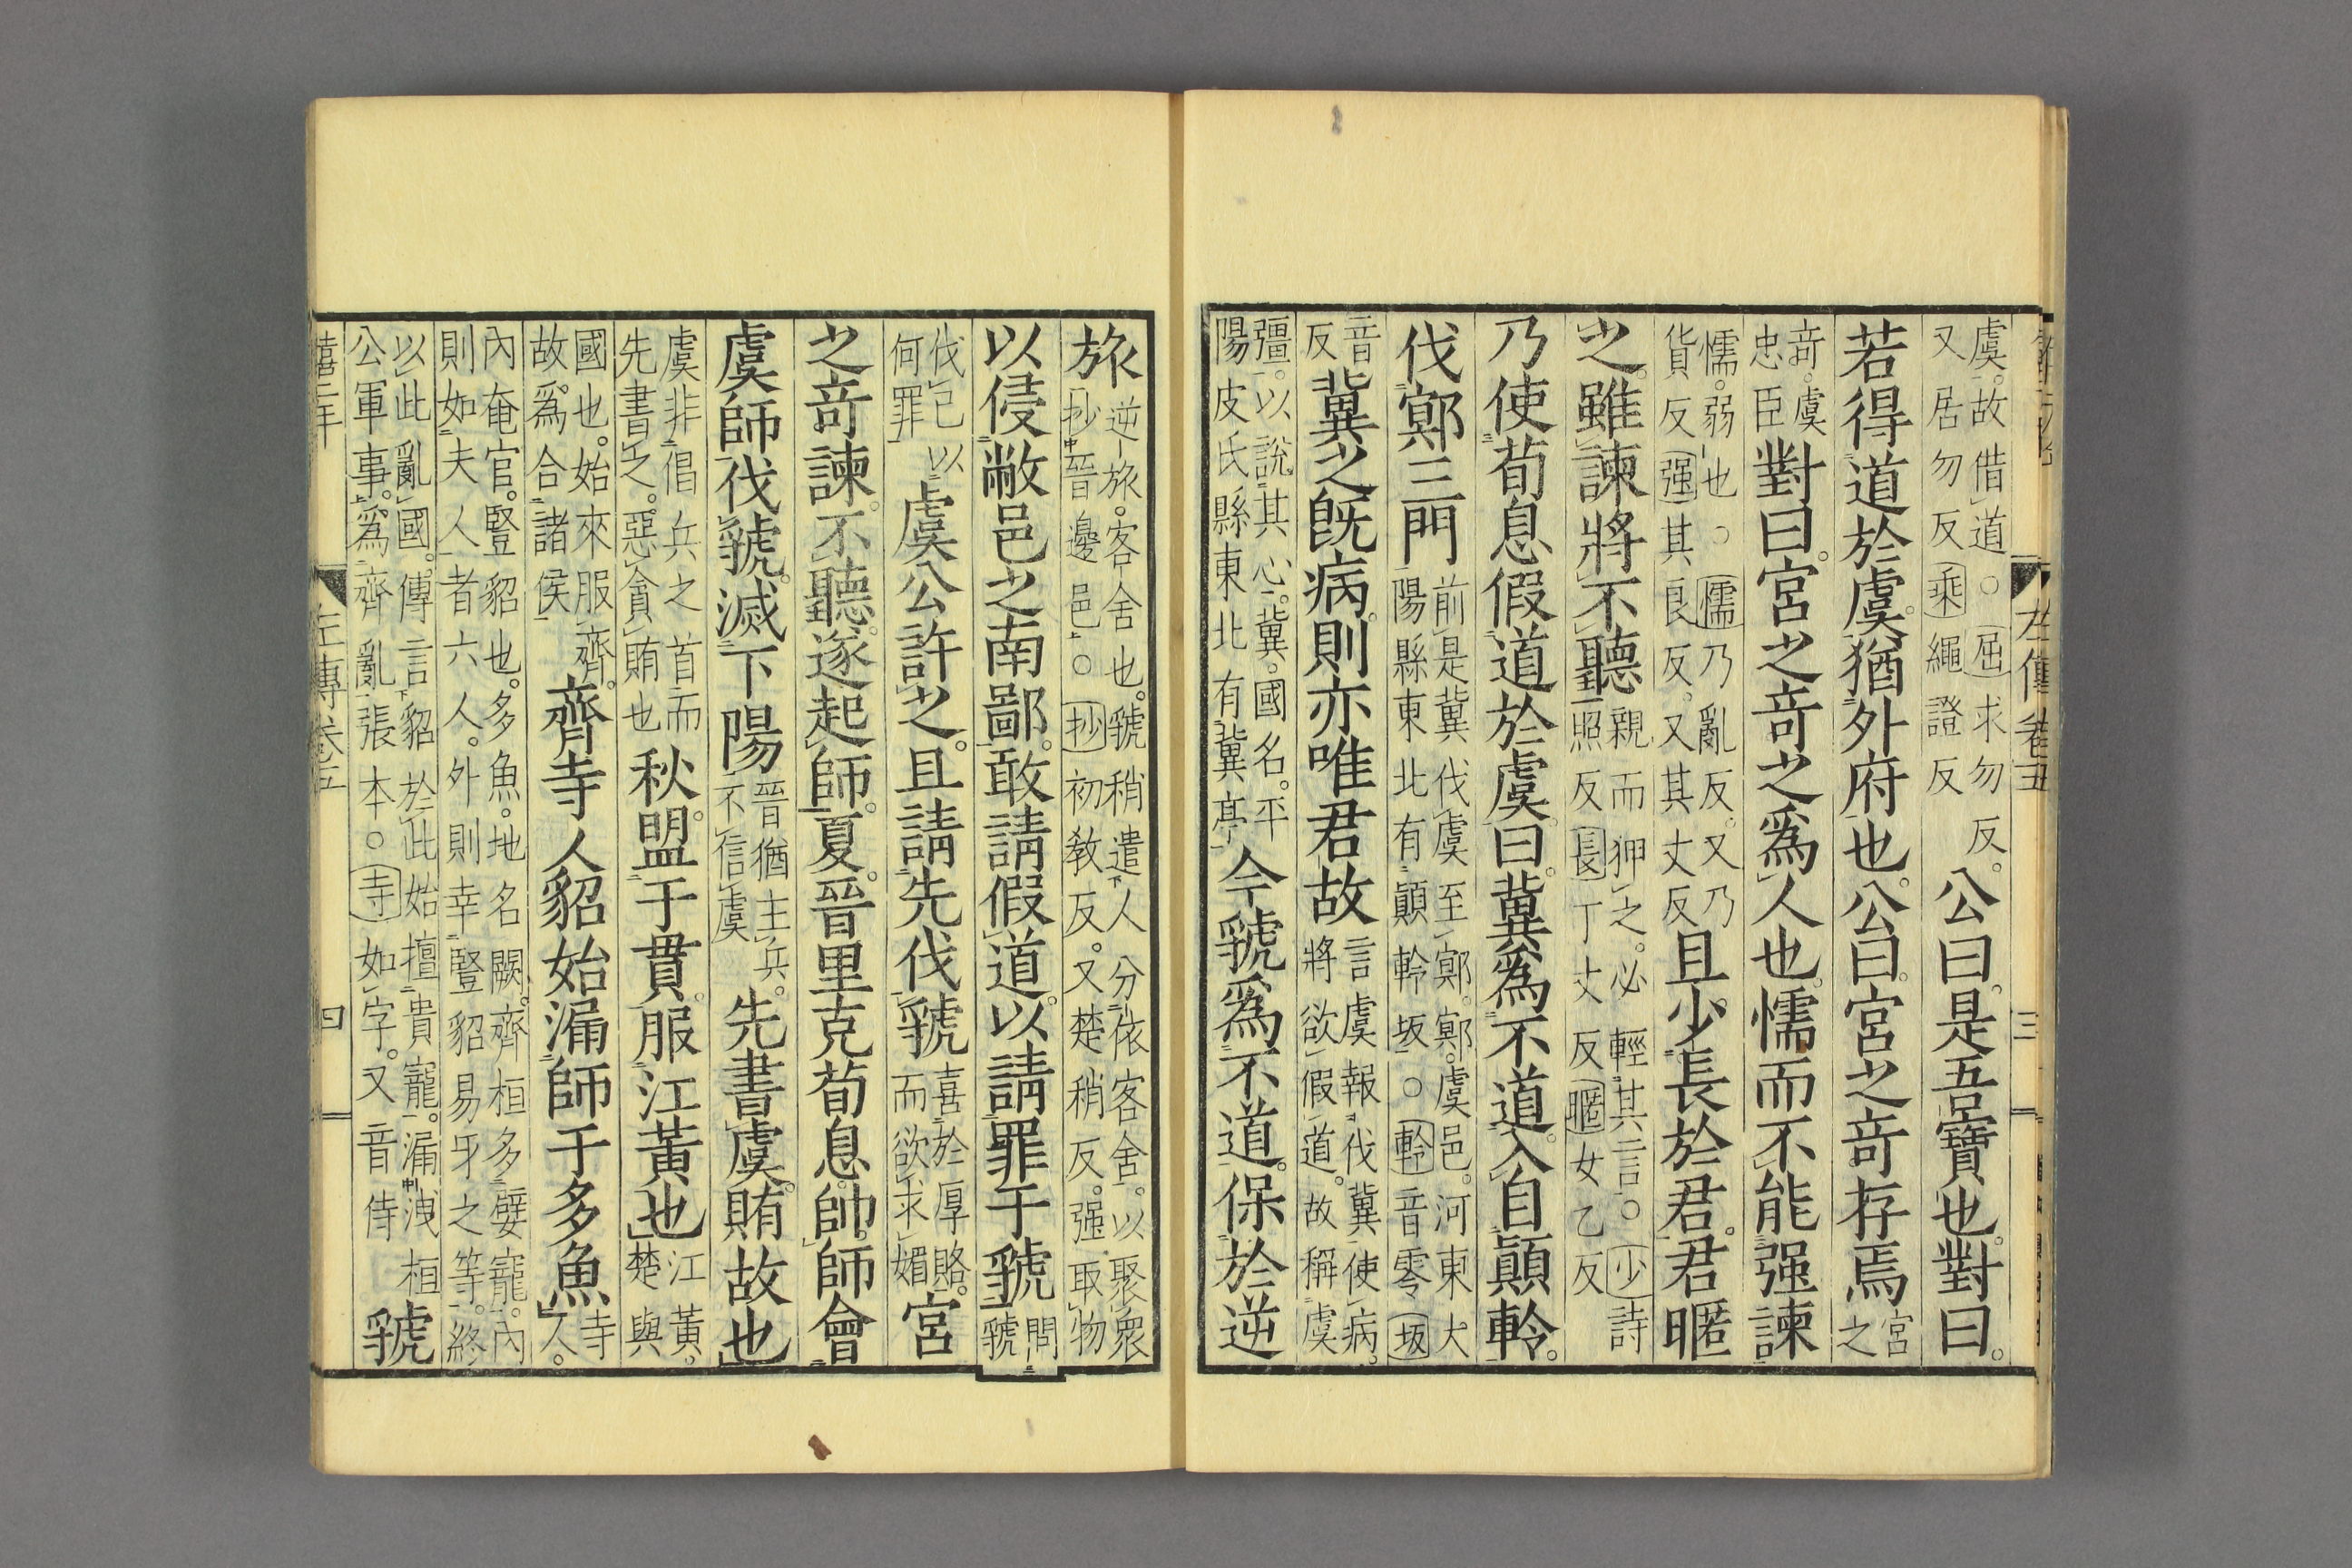 虞故借道○屈求勿反
又居勿反乘繩證反公曰是吾寶也對曰
若得道於虞猶外府也公曰宮之奇存焉宮之
奇虞
忠臣對曰宮之奇之爲人也懦而不能强諫
懦弱也○懦乃亂反又乃
貨反强其良反又其丈反且少長於君君暱
之雖諫將不聽親而狎之必輕其言○少詩
照反長丁丈反暱女乙反
乃使荀息假道於虞曰冀爲不道入自顚軨
伐鄍三門前是冀伐虞至鄍鄍虞邑河東大
陽縣東北有顚軨坂○軨音零坂
音
反冀之旣病則亦唯君故言虞報伐冀使病
將欲假道故稱虞
彊以說其心冀國名平
陽皮氏縣東北有冀亭今虢爲不道保於逆
左傳卷五
三
旅逆旅客舍也虢稍遣人分依客舍以聚衆
抄晉邊邑○抄初敎反又楚稍反强取物
以侵敝邑之南鄙敢請假道以請罪于虢問虢
伐己以
何罪虞公許之且請先伐虢喜於厚賂
而欲求媚宮
之奇諫不聽遂起師夏晉里克荀息帥師會
虞師伐虢滅下陽晉猶主兵
不信虞先書虞賄故也
虞非倡兵之首而
先書之惡貪賄也秋盟于貫服江黃也江黃
楚與
國也始來服齊
故爲合諸侯齊寺人貂始漏師于多魚寺人
內奄官豎貂也多魚地名闕齊桓多嬖寵內
則如夫人者六人外則幸豎貂易牙之等終
以此亂國傳言貂於此始擅貴寵漏洩桓
公軍事爲齊亂張本○寺如字又音侍虢
僖二年
左傳卷五
四